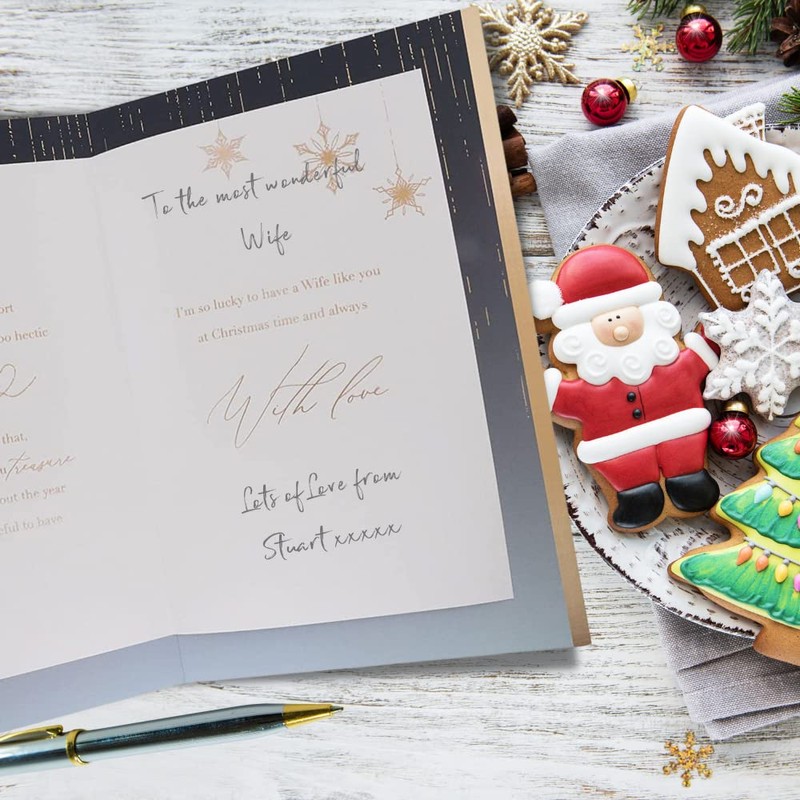 ort
oo hectic
that,
treasure
out the year
eful to have
To the most wonderful
Wife
I'm so lucky to have a Wife like you
at Christmas time and always
With love
Lots of Love from
Stuart xxxxx